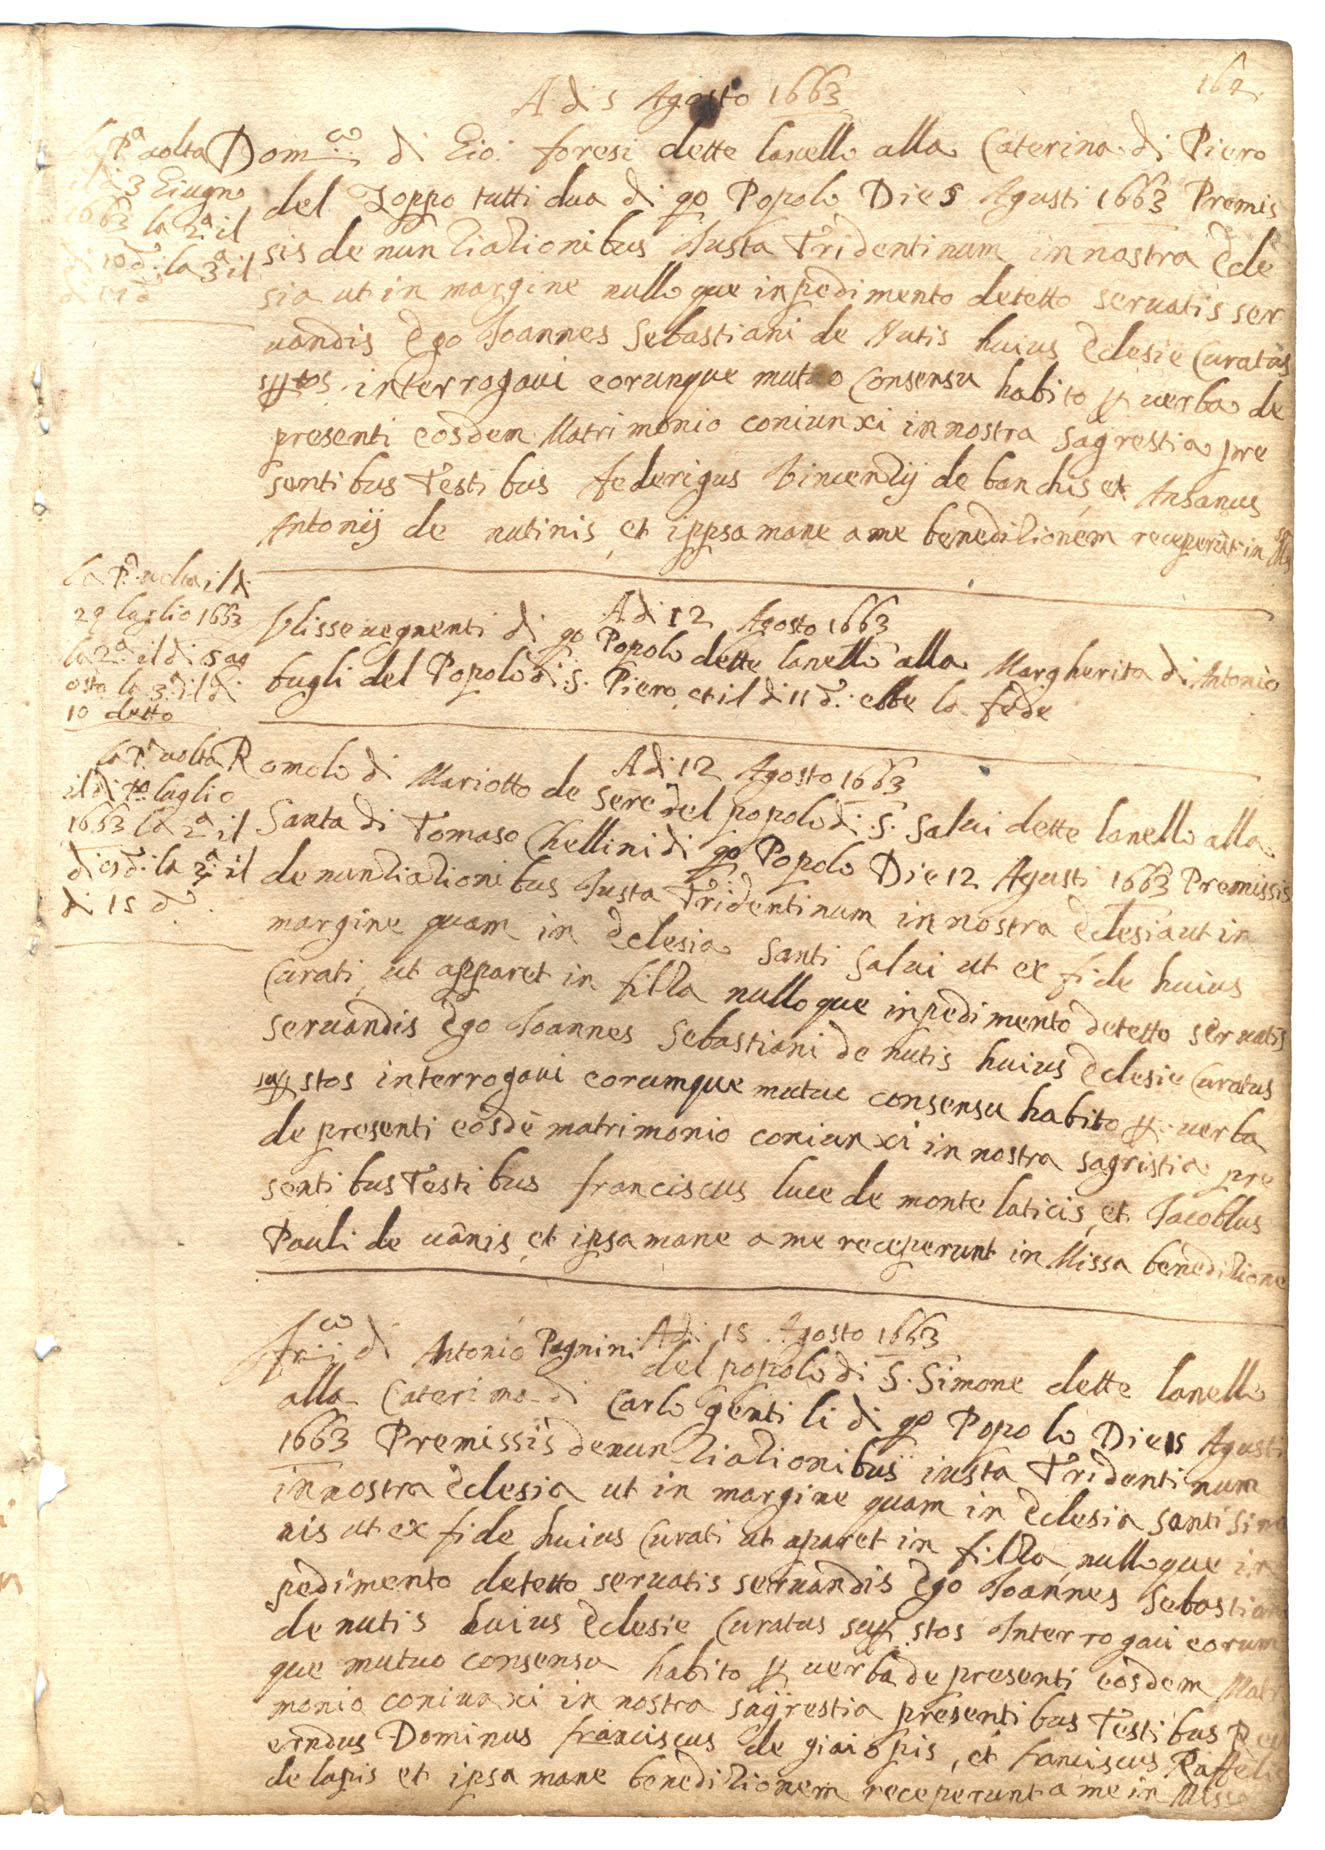 162
A di 5 Agosto 1663
la P.ª volta
il di 3 Giugno
1663 la 2.ª il
di 10 d.º la 3.ª il
di 17 d.º
Dom.co di Gio: foresi dette lanello alla Caterina di Piero
del Zoppo tutti dua di qo Popolo Die 5 Agusti 1663 Premis
sis denuntiationibus Iusta Tridentinum in nostra Ecle
sia ut in margine nulloque inpedimento detetto servatis ser
vandis Ego Ioannes Sebastiani de Nutis huius Eclesie Curatus
sptos interrogavi eorunque mutuo Consensu habito p verba de
presenti eosdem Matrimonio coniunxi in nostra sagrestia pre
sentibus Testibus federigus Vincentij de banchis, et Ansanus
Antonij de nutinis, et ippsa mane a me beneditionem receperut in
la P.ª volta il di
29 luglio 1663
la 2.ª il di 5 ag
osto la 3.ª il di
10 detto
A di 12 Agosto 1663
Ulisse vegnenti di qo Popolo dette lanello alla Margherita di Antonio
bugli del Popolo di S. Piero, et il di 11 d.º ebbe la fede
la P.ª volta
il di luglio
1663 la 2.ª il
di d.º la 3.ª il
di 15 d.º
A di 12 Agosto 1663
Romolo di Mariotto de Sere del popolo di S. Salvi dette lanello alla
Santa di Tomaso Chellini di qo Popolo Die 12 Agusti 1663 Premissis
denuntiationibus Iusta Tridentinum in nostra Eclesia ut in
margine quam in Eclesia Santi Salvi ut ex fide huius
Curati, ut apparet in filza nulloque inpedimento detetto servatis
servandis Ego Ioannes Sebastiani de nutis huius Eclesie Curatus
sup stos interrogavi eorumque mutuc consensu habito p verba
de presenti eosdē matrimonio coniunxi in nostra sagristia pre
sentibus Testibus franciscus luce de monte laticis, et Iacobbus
Pauli de vanis, et ipsa mane a me receperunt in Missa beneditione
A di 15 Agosto 1663
fr.co di Antonio Pagnini del popolo di S. Simone dette lanello
alla Caterina di Carlo gentili di qo Popolo Die 15 Agusti
1663 Premissis denuntiationibus iusta Tridentinum
in nostra Eclesia ut in margine quam in Eclesia santi Simo
nis ut ex fide huius Curati ut aparet in filza, nulloque in
pedimento detetto servatis servandis Ego Ioannes Sebastiani
de nutis huius Eclesie Curatus sup stos Interrogavi eorum
que mutuo consensu habito p verba de presenti eosdem Matri
monio coniunxi in nostra sagrestia presentibus Testibus Rev
erndus Dominus franciscus de giaiopis, et franciscus Raffaelis
de lapis et ipsa mane beneditionem receperunt a me in Missa